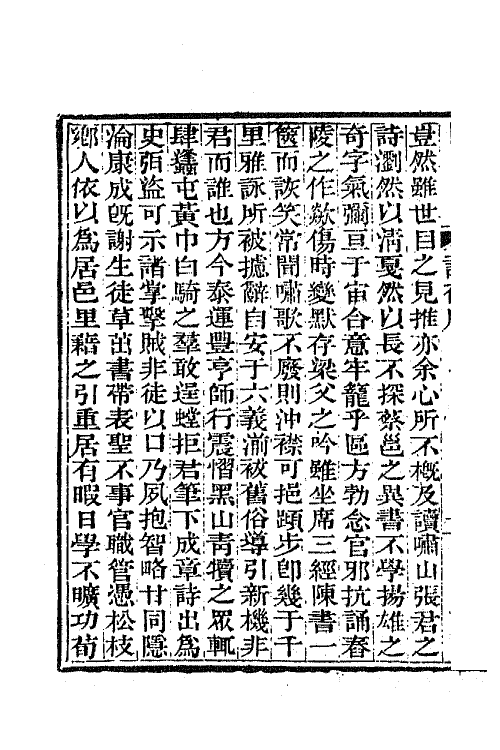 豈然雖世目之見推亦余心所不概及讀嘯山張君之
詩瀏然以淸戛然以長不探蔡邕之異書不學揚雄之
奇字氣彌亘于宙合意牢籠乎區方勃念官邪抗誦舂
陵之作欷傷時變默存梁父之吟雖坐席三經陳書一
篋而詼笑常聞嘯歌不廢則沖襟可挹頤步卽幾于千
里雅詠所被摅辭自安于六義湔被舊俗導引新機非
君而誰也方今泰運豐亨師行震慴黑山靑犢之眾輒
肆蠭屯黃巾白騎之羣敢逞螳拒君筆下成章詩出爲
史弭盜可示諸掌擊賊非徒以口乃夙抱智略甘同隱
淪康成旣謝生徒草茁書帶表聖不事官職管憑松枝
鄉人依以爲居邑里藉之引重居有暇日學不曠功荀